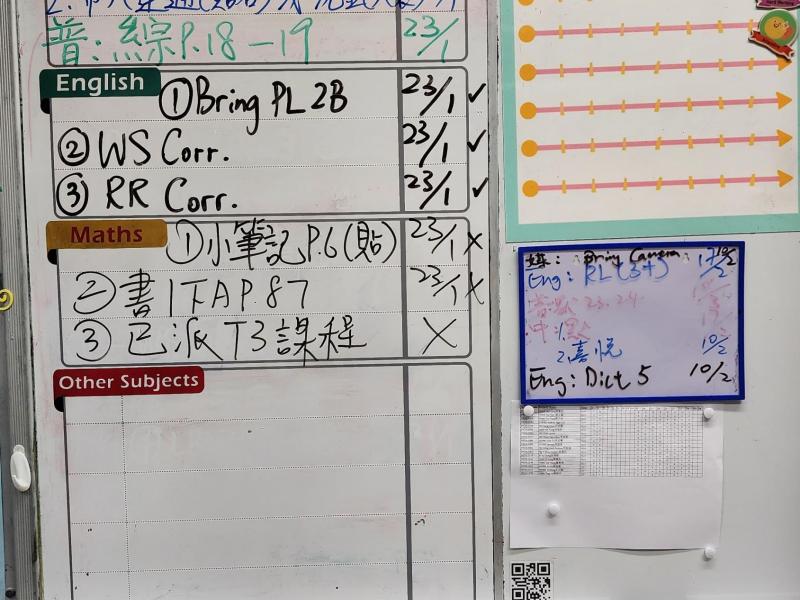 普:綜P.18-19 23/1
English
①Bring PL 2B 23/1 ✓
②WS Corr. 23/1 ✓
③ RR Corr. 23/1 ✓
Maths
①小筆記P.6(貼) 23/1 X
②書1下A P.87 23/1 X
③已派T3課程 X
Other Subjects
Bring Camera
Eng: RL (3+)
23.24
中:
2.嘉悅 10/2
Eng: Dict 5 10/2